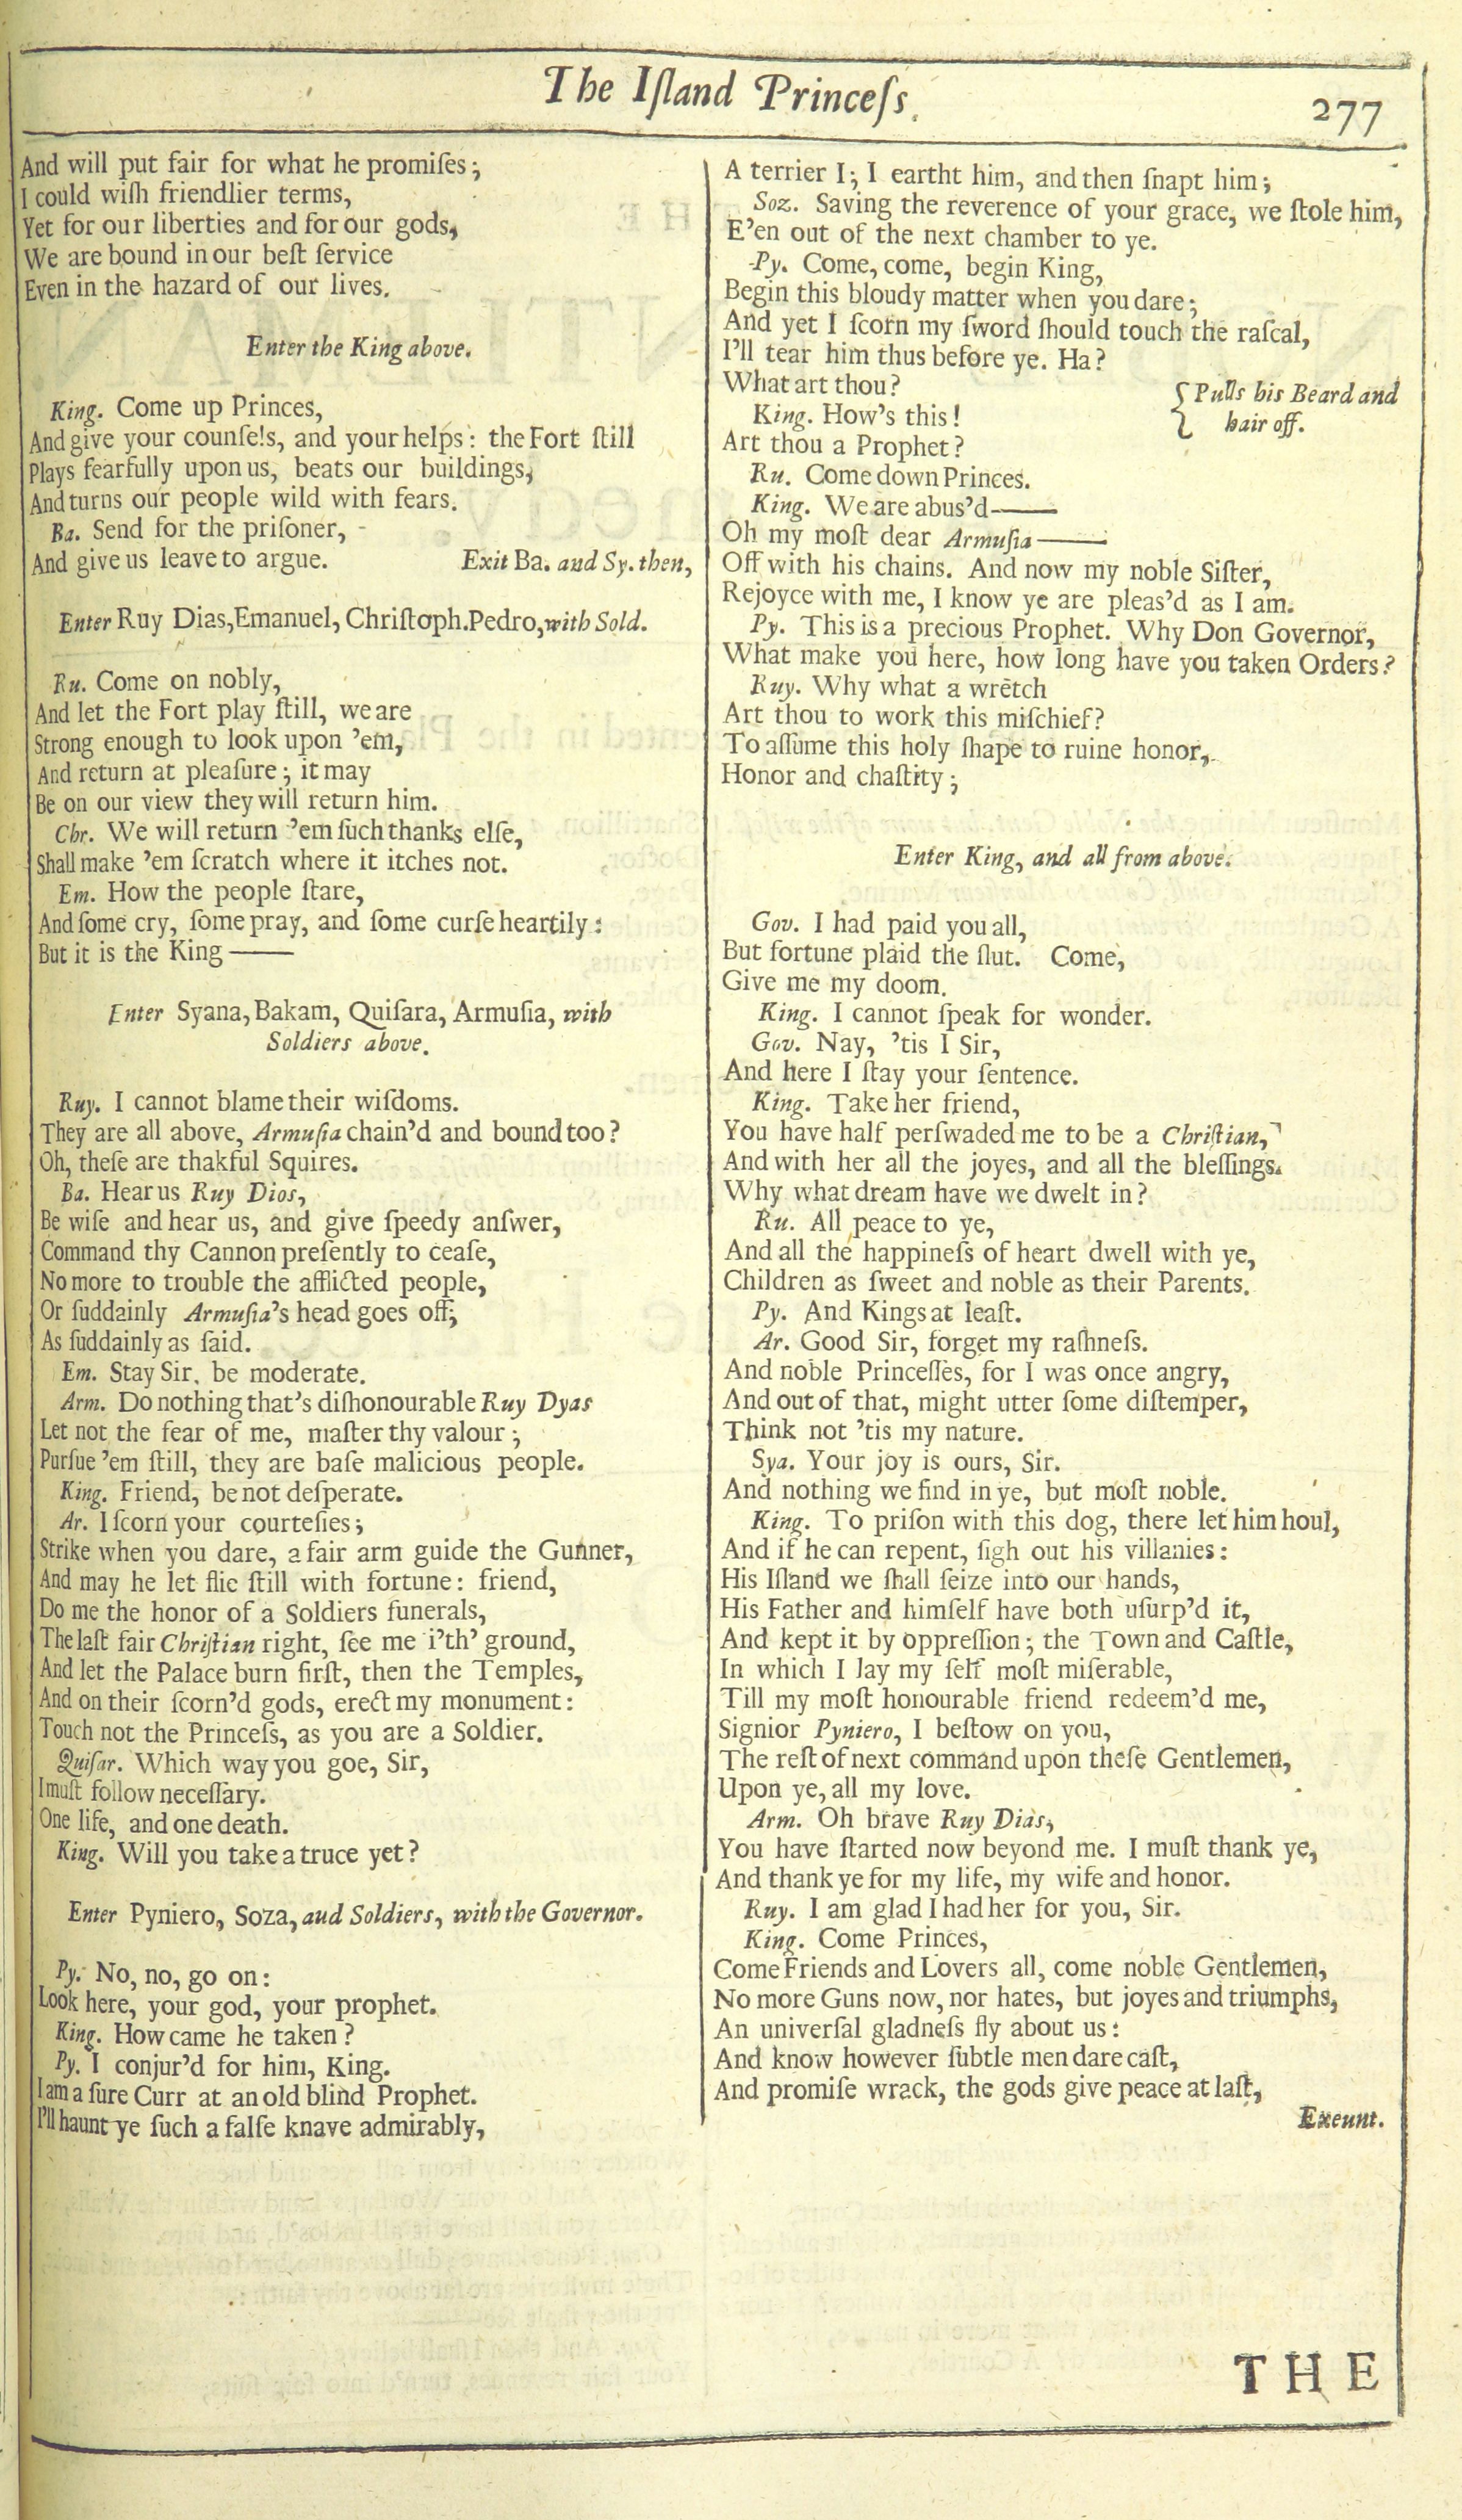 The Iſland Princeſs.
277
And will put fair for what he promiſes;
I could wiſh friendlier terms,
Yet for our liberties and for our gods,
We are bound in our beſt ſervice
Even in the hazard of our lives.
Enter the King above.
King. Come up Princes,
And give your counſels, and your helps: the Fort ſtill
Plays fearfully upon us, beats our buildings,
And turns our people wild with fears.
Ba. Send for the priſoner,
And give us leave to argue. Exit Ba. and Sy. then,
Enter Ruy Dias, Emanuel, Chriſtoph. Pedro, with Sold.
Ru. Come on nobly,
And let the Fort play ſtill, we are
Strong enough to look upon 'em,
And return at pleaſure; it may
Be on our view they will return him.
Chr. We will return 'em ſuch thanks elſe,
Shall make 'em ſcratch where it itches not.
Em. How the people ſtare,
And ſome cry, ſome pray, and ſome curſe heartily:
But it is the King——
Enter Syana, Bakam, Quiſara, Armuſia, with
Soldiers above.
Ruy. I cannot blame their wiſdoms.
They are all above, Armuſia chain'd and bound too?
Oh, theſe are thakful Squires.
Ba. Hear us Ruy Dios,
Be wiſe and hear us, and give ſpeedy anſwer,
Command thy Cannon preſently to ceaſe,
No more to trouble the afflicted people,
Or ſuddainly Armuſia's head goes off,
As ſuddainly as ſaid.
Em. Stay Sir, be moderate.
Arm. Do nothing that's diſhonourable Ruy Dyas
Let not the fear of me, maſter thy valour;
Purſue 'em ſtill, they are baſe malicious people.
King. Friend, be not deſperate.
Ar. I ſcorn your courteſies;
Strike when you dare, a fair arm guide the Gunner,
And may he let flie ſtill with fortune: friend,
Do me the honor of a Soldiers funerals,
The laſt fair Chriſtian right, ſee me i'th' ground,
And let the Palace burn firſt, then the Temples,
And on their ſcorn'd gods, erect my monument:
Touch not the Princeſs, as you are a Soldier.
Quiſar. Which way you goe, Sir,
I muſt follow neceſſary.
One life, and one death.
King. Will you take a truce yet?
Enter Pyniero, Soza, aud Soldiers, with the Governor.
Py. No, no, go on:
Look here, your god, your prophet.
King. How came he taken?
Py. I conjur'd for him, King.
I am a ſure Curr at an old blind Prophet.
I'll haunt ye ſuch a falſe knave admirably,
A terrier I; I eartht him, and then ſnapt him;
Soz. Saving the reverence of your grace, we ſtole him,
E'en out of the next chamber to ye.
Py. Come, come, begin King,
Begin this bloudy matter when you dare;
And yet I ſcorn my ſword ſhould touch the raſcal,
I'll tear him thus before ye. Ha?
What art thou? { Pulls his Beard and
King. How's this! hair off.
Art thou a Prophet?
Ru. Come down Princes.
King. We are abus'd——
Oh my moſt dear Armuſia——
Off with his chains. And now my noble Siſter,
Rejoyce with me, I know ye are pleas'd as I am.
Py. This is a precious Prophet. Why Don Governor,
What make you here, how long have you taken Orders?
Ruy. Why what a wretch
Art thou to work this miſchief?
To aſſume this holy ſhape to ruine honor,
Honor and chaſtity;
Enter King, and all from above.
Gov. I had paid you all,
But fortune plaid the ſlut. Come,
Give me my doom.
King. I cannot ſpeak for wonder.
Gov. Nay, 'tis I Sir,
And here I ſtay your ſentence.
King. Take her friend,
You have half perſwaded me to be a Chriſtian,
And with her all the joyes, and all the bleſſings.
Why what dream have we dwelt in?
Ru. All peace to ye,
And all the happineſs of heart dwell with ye,
Children as ſweet and noble as their Parents.
Py. And Kings at leaſt.
Ar. Good Sir, forget my raſhneſs.
And noble Princeſſes, for I was once angry,
And out of that, might utter ſome diſtemper,
Think not 'tis my nature.
Sya. Your joy is ours, Sir.
And nothing we find in ye, but moſt noble.
King. To priſon with this dog, there let him houl,
And if he can repent, ſigh out his villanies:
His Iſland we ſhall ſeize into our hands,
His Father and himſelf have both uſurp'd it,
And kept it by oppreſſion; the Town and Caſtle,
In which I lay my ſelf moſt miſerable,
Till my moſt honourable friend redeem'd me,
Signior Pyniero, I beſtow on you,
The reſt of next command upon theſe Gentlemen,
Upon ye, all my love.
Arm. Oh brave Ruy Dias,
You have ſtarted now beyond me. I muſt thank ye,
And thank ye for my life, my wife and honor.
Ruy. I am glad I had her for you, Sir.
King. Come Princes,
Come Friends and Lovers all, come noble Gentlemen,
No more Guns now, nor hates, but joyes and triumphs,
An univerſal gladneſs fly about us:
And know however ſubtle men dare caſt,
And promiſe wrack, the gods give peace at laſt,
Exeunt.
THE